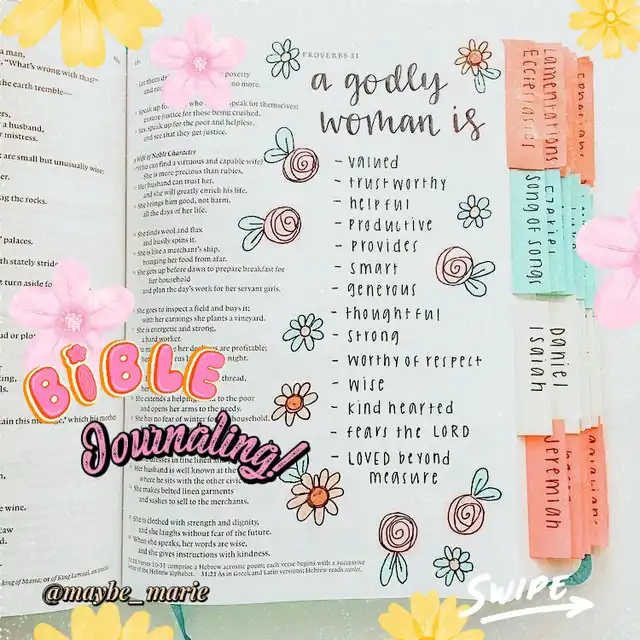 a man,
"What's wrong with that?"
the earth tremble—
a husband,
mistress.
are small but unusually wise:
ng the rocks.
palaces.
th stately stride
t turn aside fo
PROVERBS 31
poverty
no more.
speak for themselves;
ensure justice for those being crushed.
speak up for the poor and helpless,
and see that they get justice.
A Wife of Noble Character
Who can find a virtuous and capable wife?
She is more precious than rubies.
Her husband can trust her,
and she will greatly enrich his life.
She brings him good, not harm,
all the days of her life.
She finds wool and flax
and busily spins it.
She is like a merchant's ship,
bringing her food from afar.
She gets up before dawn to prepare breakfast for
her household
and plan the day's work for her servant girls.
She goes to inspect a field and buys it;
with her earnings she plants a vineyard.
She is energetic and strong,
a hard worker.
her dealings are profitable;
night.
thread.
She extends a helping to the poor
and opens her arms to the needy.
She has no fear of winter for household,
Her husband is well known at the
where he sits with the other civic
She makes belted linen garments
and sashes to sell to the merchants.
She is clothed with strength and dignity,
and she laughs without fear of the future.
When she speaks, her words are wise,
and she gives instructions with kindness.
a godly
woman is
- valued
- trustworthy
- helpful
- productive
- provides
- smart
- generous
- thoughtful
- strong
- worthy of respect
- wise
- kind hearted
- fears the LORD
- LOVED beyond
measure
Lamentations
Ecclesiastes
Ezekiel
Song of Songs
Daniel
Isaiah
Jeremiah
BiBLE
Journaling!
@maybe_marie
SWIPE